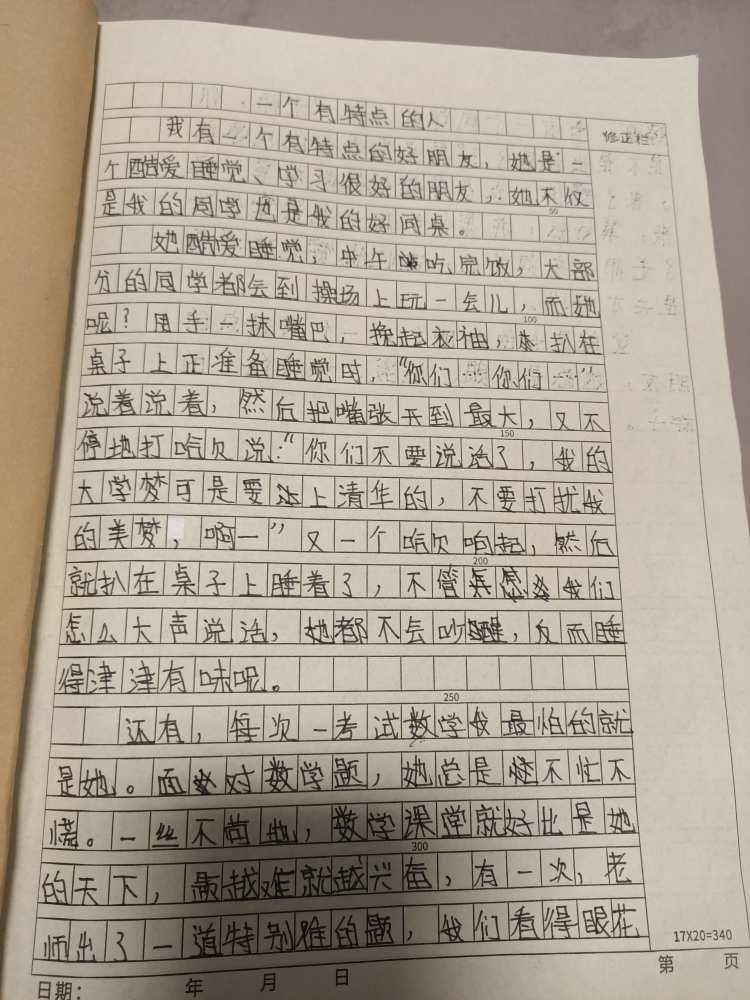 一个有特点的人
修正栏
我有一个有特点的好朋友，她是一
个酷爱睡觉、学习很好的朋友，她不仅
是我的同学也是我的好同桌。
她酷爱睡觉，中午吃完饭，大部
分的同学都会到操场上玩一会儿，而她
呢？用手一抹嘴巴，挽起衣袖，扒在
100
桌子上正准备睡觉时，“你们一你们一”
说着说着，然后把嘴张开到最大，又不
停地打哈欠说：“你们不要说话了，我的
150
大学梦可是要上清华的，不要打扰我
的美梦，啊一”又一个哈欠响起，然后
就扒在桌子上睡着了，不管我们
200
怎么大声说话，她都不会吵醒，反而睡
得津津有味呢。
还有，每次一考试数学我最怕的就
250
是她。面对数学题，她总是不忙不
慌。一丝不苟地，数学课堂就好比是她
的天下，题越难就越兴奋，有一次，老
300
师出了一道特别难的题，我们看得眼花
17X20=340
日期： 年 月 日 第 页